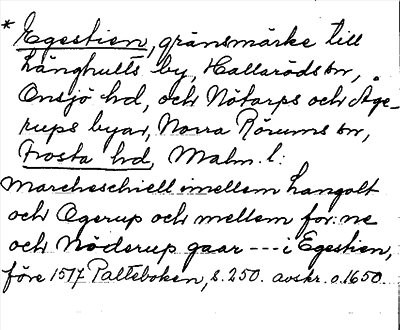 * Egestien, gränsmärke till
Långhults by, Hallaröds sn,
Onsjö hd, och Nötarps och Åge-
rups byar, Norra Rörums sn,
Frosta hd, Malm. l:
Marcheschiell imellem Langolt
och Agerup och mellem for:ne
och Nöderup gaar --- i Egestien,
före 1517 Palteboken, s. 250. avskr. o. 1650.